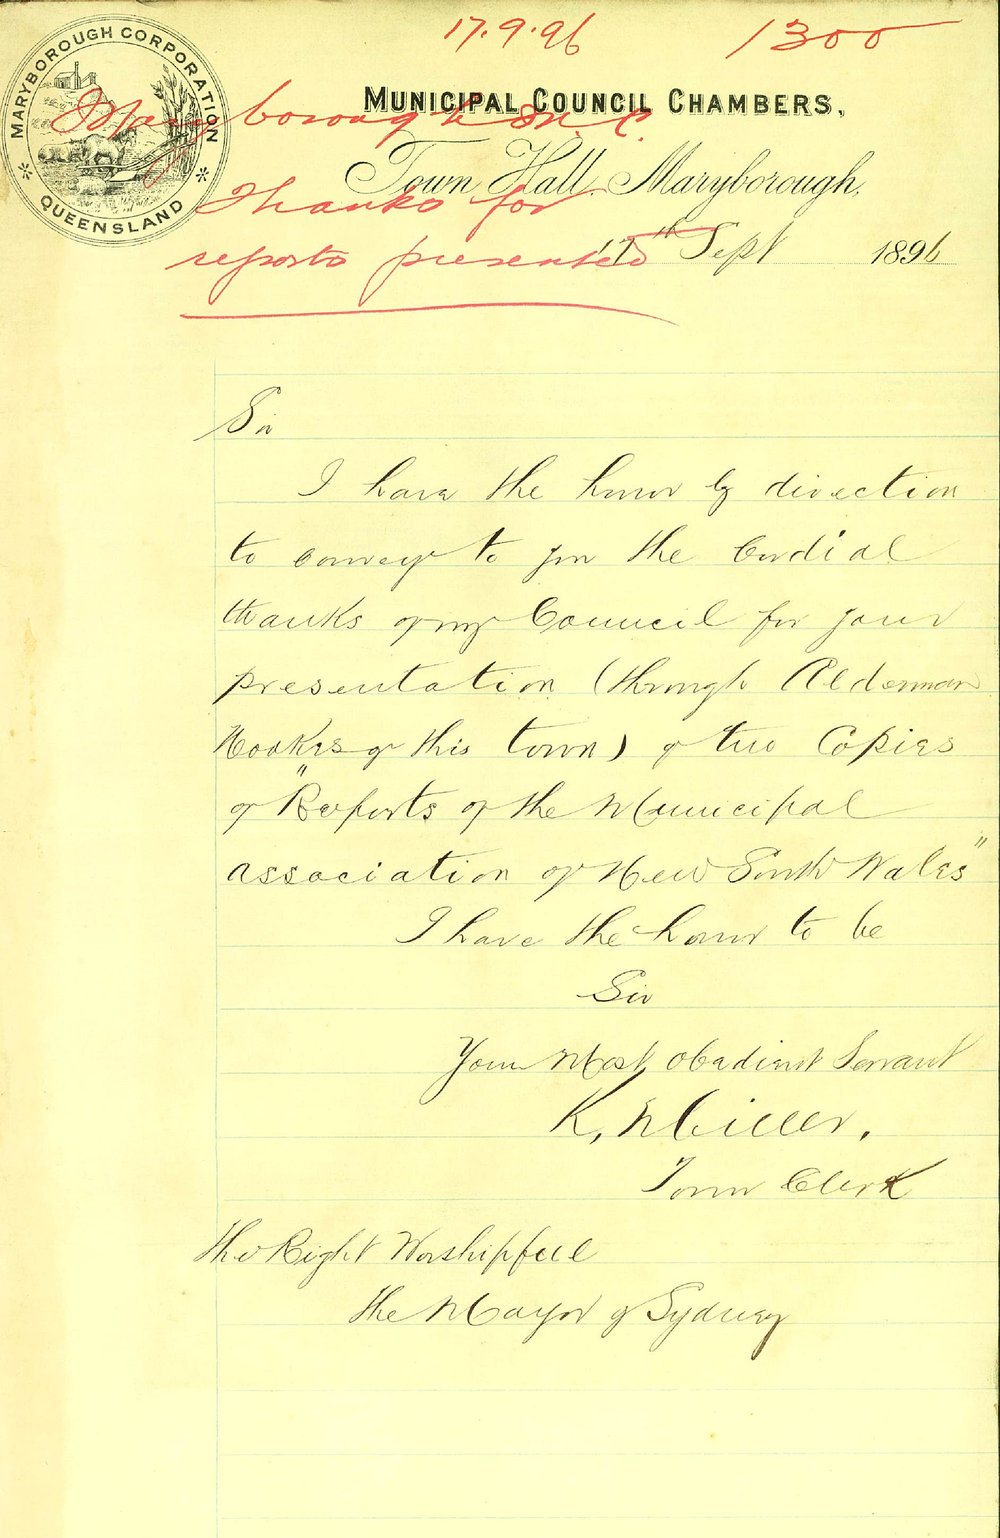 17.9.96 1300
MARYBOROUGH CORPORATION
QUEENSLAND
MUNICIPAL COUNCIL CHAMBERS,
Maryborough M. C.
Town Hall. Maryborough.
Thanks for
17th Sept 1896
reports presented
Sir
I have the honor by direction
to convey to you the Cordial
thanks of my Council for your
presentation (through Alderman
of this town) of two Copies
of "Reports of the Municipal
association of New South Wales"
I have the honor to be
Sir
Your Most Obedient Servant
K. Miller.
Town Clerk
The Right Worshipfull
the Mayor of Sydney